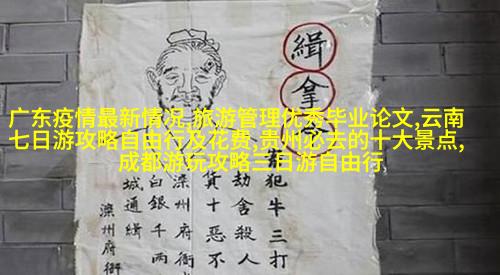 广东疫情最新情况,旅游管理优秀毕业论文,云南
七日游攻略自由行及花费,贵州必去的十大景点,
成都游玩攻略三日游自由行
緝拿
犯牛三打
劫舍殺人
貨十惡不
滦州府衙
白銀千两
城通緝
滦州府衙